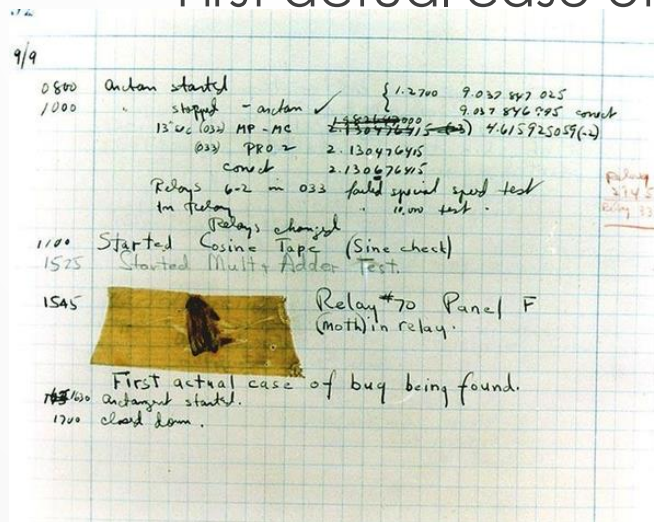 First actual case of
9/9
0800 Antan started { 1.2700 9.037 847 025
1000 " stopped - antan ✓ 9.037 846 995 correct
13" uc (032) MP - MC 2.130476415 (-3) 4.615925059(-2)
(033) PRO 2 2.130476415
correct 2.130676415
Relays 6-2 in 033 failed special speed test
in relay " 10.000 test .
Relays changed
1100 Started Cosine Tape (Sine check)
1525 Started Mult + Adder Test.
1545 Relay #70 Panel F
(moth) in relay.
First actual case of bug being found.
1630 antangent started.
1700 closed down.
Relay
Relay 33